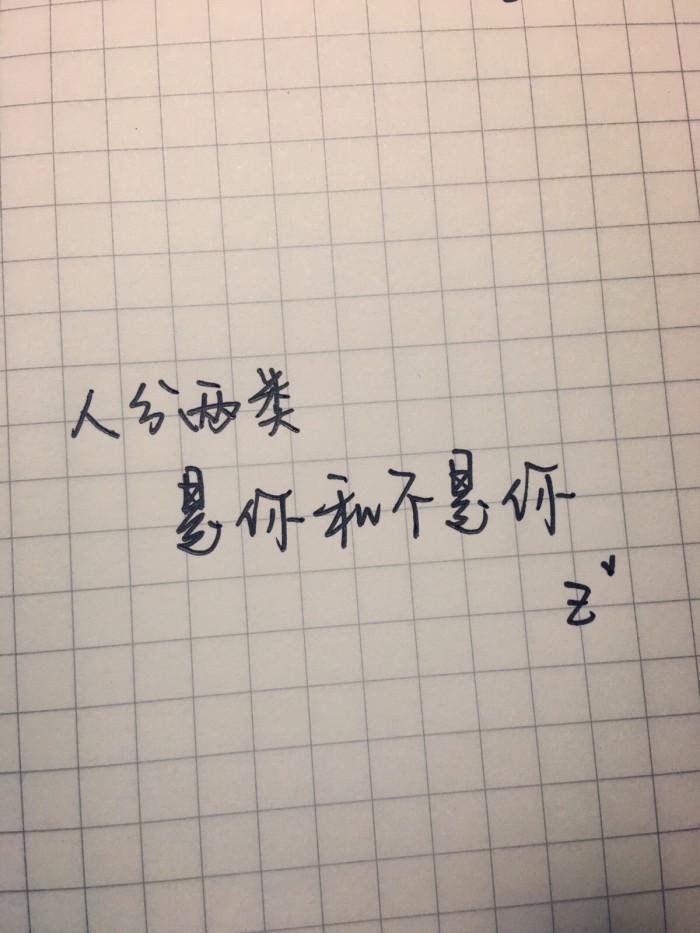 人分两类
是你和不是你
Z